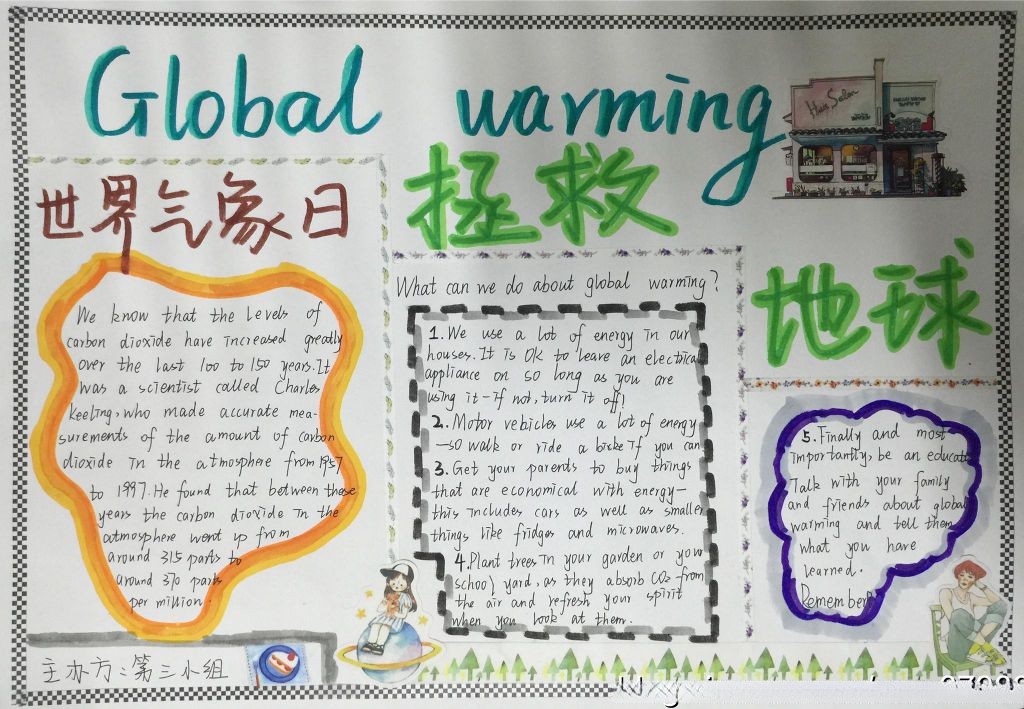 Global warming
世界气象日
拯救
地球
We know that the levels of
carbon dioxide have increased greatly
over the last 100 to 150 years. It
was a scientist called Charles
Keeling, who made accurate mea-
surements of the amount of carbon
dioxide in the atmosphere from 1957
to 1997. He found that between these
years the carbon dioxide in the
atmosphere went up from
around 315 parts to
around 370 parts
per million.
What can we do about global warming?
1. We use a lot of energy in our
houses. It is OK to leave an electrical
appliance on so long as you are
using it - if not, turn it off!
2. Motor vehicles use a lot of energy
—so walk or ride a bike if you can
3. Get your parents to buy things
that are economical with energy—
this includes cars as well as smaller
things like fridges and microwaves.
4. Plant trees in your garden or your
school yard, as they absorb CO2 from
the air and refresh your spirit
when you look at them.
5. Finally and most
importantly, be an educato
Talk with your family
and friends about global
warming and tell them
what you have
learned.
Remember
主办方:第三小组
Hair Salon